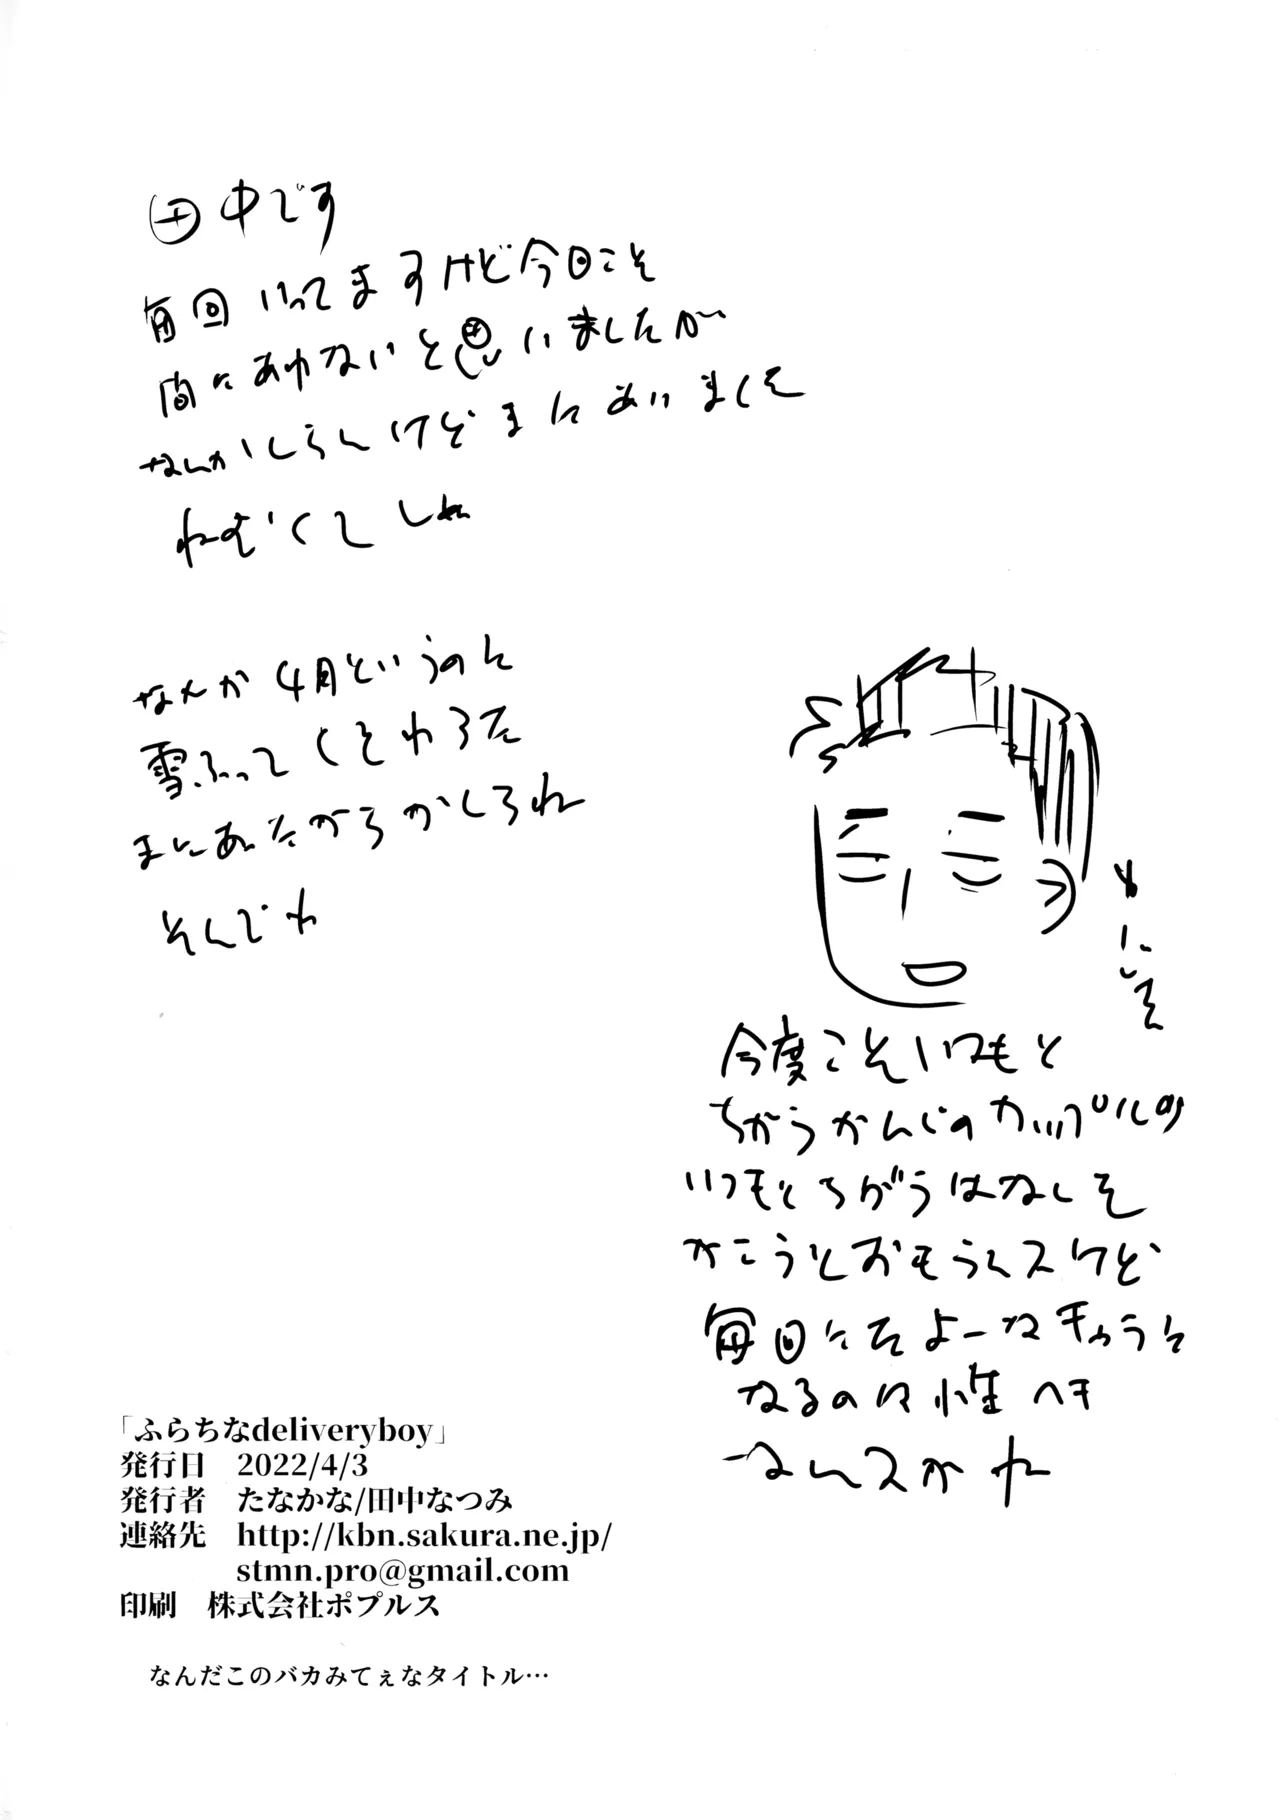 田中です
毎回いってますけど今回こそ
間にあわないと思いましたが
なんかしらんけどまにあいまして
ねむくてしぬ
なんか4月というのに
雪ふってくそわろた
まにあたがらかしろね
そんでわ
今度こそいつもと
ちがうかんじのカップルの
いつもとちがうはなしを
かこうとおもうんスケど
毎回にたよーなキャラに
なるのは性ヘキ
なんスかね
「ふらちなdeliveryboy」
発行日　2022/4/3
発行者　たなかな/田中なつみ
連絡先　http://kbn.sakura.ne.jp/
stmn.pro@gmail.com
印刷　株式会社ポプルス
なんだこのバカみてぇなタイトル…